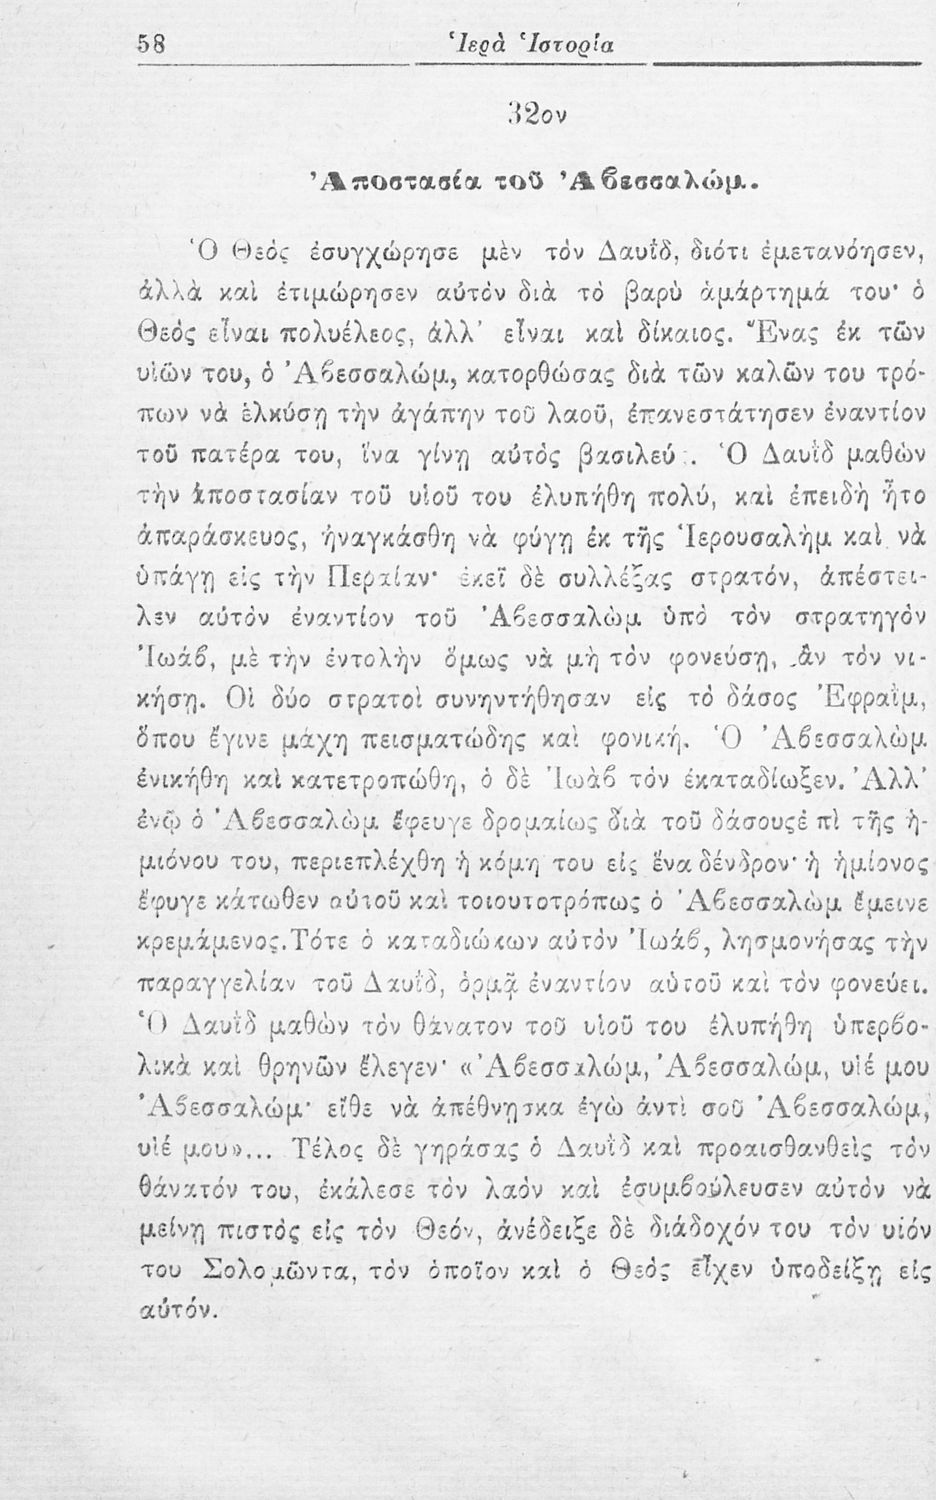 58 Ἱερὰ Ἱστορία
32ον
Ἀποστασία τοῦ Ἀβεσσαλώμ.
Ὁ Θεός ἐσυγχώρησε μὲν τόν Δαυΐδ, διότι ἐμετανόησεν,
ἀλλὰ καὶ ἐτιμώρησεν αὐτόν διὰ τό βαρὺ ἁμάρτημά του· ὁ
Θεός εἶναι πολυέλεος, ἀλλ' εἶναι καὶ δίκαιος. Ἕνας ἐκ τῶν
υἱῶν του, ὁ Ἀβεσσαλώμ, κατορθώσας διὰ τῶν καλῶν του τρό-
πων νὰ ἑλκύσῃ τὴν ἀγάπην τοῦ λαοῦ, ἐπανεστάτησεν ἐναντίον
τοῦ πατέρα του, ἵνα γίνῃ αὐτός βασιλεύς. Ὁ Δαυῒδ μαθὼν
τὴν ἀποστασίαν τοῦ υἱοῦ του ἐλυπήθη πολύ, καὶ ἐπειδὴ ἦτο
ἀπαράσκευος, ἠναγκάσθη νὰ φύγῃ ἐκ τῆς Ἱερουσαλὴμ καὶ νὰ
ὑπάγῃ εἰς τὴν Περαίαν· ἐκεῖ δὲ συλλέξας στρατόν, ἀπέστει-
λεν αὐτόν ἐναντίον τοῦ Ἀβεσσαλὼμ ὑπό τόν στρατηγόν
Ἰωάβ, μὲ τὴν ἐντολὴν ὅμως νὰ μὴ τόν φονεύσῃ, ἂν τόν νι-
κήσῃ. Οἱ δύο στρατοὶ συνηντήθησαν εἰς τό δάσος Ἐφραΐμ,
ὅπου ἔγινε μάχη πεισματώδης καὶ φονική. Ὁ Ἀβεσσαλὼμ
ἐνικήθη καὶ κατετροπώθη, ὁ δὲ Ἰωὰβ τόν ἐκαταδίωξεν. Ἀλλ'
ἐνῷ ὁ Ἀβεσσαλὼμ ἔφευγε δρομαίως διὰ τοῦ δάσουςἐ πὶ τῆς ἡ-
μιόνου του, περιεπλέχθη ἡ κόμη του εἰς ἕνα δένδρον· ἡ ἡμίονος
ἔφυγε κάτωθεν αὐτοῦ καὶ τοιουτοτρόπως ὁ Ἀβεσσαλὼμ ἔμεινε
κρεμάμενος.Τότε ὁ καταδιώκων αὐτόν Ἰωάβ, λησμονήσας τὴν
παραγγελίαν τοῦ Δαυΐδ, ὁρμᾷ ἐναντίον αὐτοῦ καὶ τόν φονεύει.
Ὁ Δαυῒδ μαθὼν τόν θάνατον τοῦ υἱοῦ του ἐλυπήθη ὑπερβο-
λικὰ καὶ θρηνῶν ἔλεγεν· «Ἀβεσσαλώμ, Ἀβεσσαλώμ, υἱέ μου
Ἀβεσσαλώμ· εἴθε νὰ ἀπέθνῃσκα ἐγὼ ἀντὶ σοῦ Ἀβεσσαλώμ,
υἱέ μου»... Τέλος δὲ γηράσας ὁ Δαυῒδ καὶ προαισθανθεὶς τόν
θάνατόν του, ἐκάλεσε τόν λαόν καὶ ἐσυμβούλευσεν αὐτόν νὰ
μείνῃ πιστός εἰς τόν Θεόν, ἀνέδειξε δὲ διάδοχόν του τόν υἱόν
του Σολομῶντα, τόν ὁποῖον καὶ ὁ Θεός εἶχεν ὑποδείξῃ εἰς
αὐτόν.